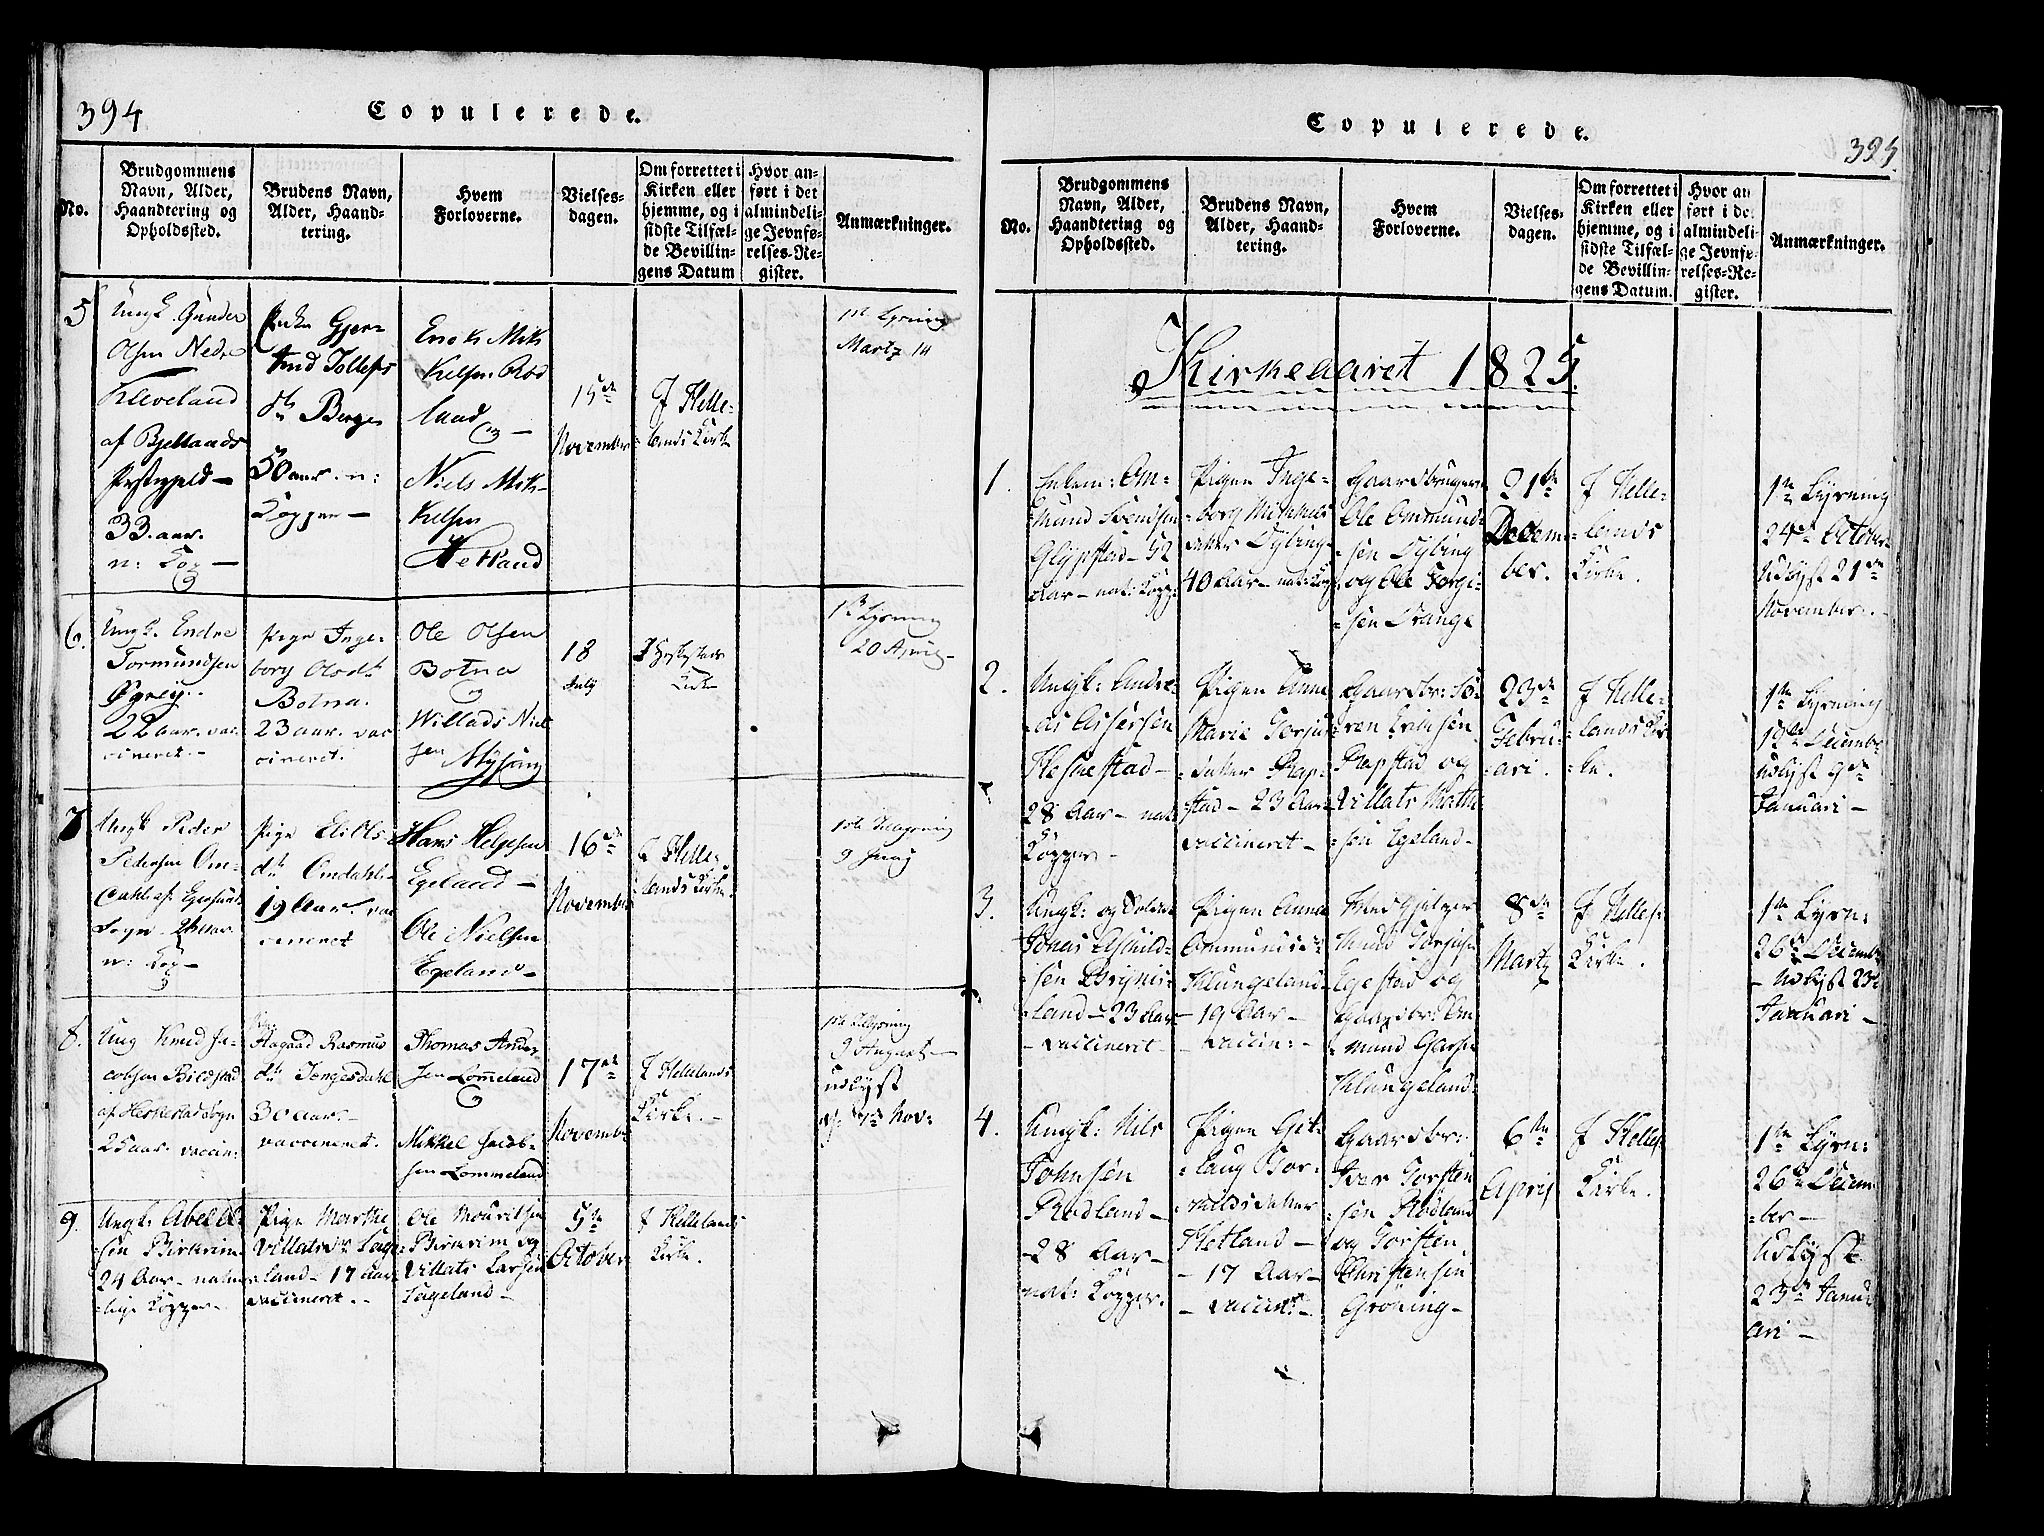 394
Copulerede.
No.
Brudgommens
Navn, Alder,
Haandtering og
Opholdssted.
Brudens Navn,
Alder, Haand-
tering.
Hvem
Forloverne.
Vielses-
dagen.
Om forrettet i
Kirken eller
hjemme, og i
sidste Tilfæl-
de Bevillin-
gens Datum
Hvor an-
ført i det
almindeli-
ge Jevnfø-
relses-Re-
gister.
Anmærkninger.
5
Ungk. Gunder
Olsen Nedre
Kleveland
af Bjellands
Præstegjeld —
33. aar.
n: Kop —
Gjer-
trud Tollefs
dtr Berge
50 aar. n:
Kopper —
Mik
kelsen Rod
land
Niels Mik-
kelsen
Hetland
15de
November
J Helle-
lands Kirke
1ste Lysning
Martz 14
6.
Ungk. Endre
Tormundsen
22 aar. vac
cineret. —
Pige Inge-
borg Olsdtr
Botna.
23 aar. vac
cineret.
Ole Olsen
Botna
Willads Niel
sen
18
July
Kirke
1ste Lysning
20
7
Ungk Peder
Pedersen Om-
dahl af
Sogn
n: Kop —
Pige
dtr Omdahl
19 Aar. vac
cineret
Hans Helgesen
Egeland —
Ole Nielsen
Egeland —
16de
November
J Helle-
lands Kirke.
9 Juny
8.
Ung Knud Ja-
cobsen
af Heskestad Sogn
25 aar. vaccin:
Rasmus
dtr
30 aar. —
vaccineret.
Thomas Ander
sen Lomeland
Mikkel Jacob-
sen Lommeland
17de
Novemb:
J Hellelands
Kirke. —
9 August —
udlyst
Nov:
9.
Ungk: Abel
sen Birkrim
24 Aar — natur
lige Kopper —
Pige Marthe
Villatsdr Lage
land — 17 aar
vaccineret. —
Ole Mouritsen
Birkrim og
Villats Larsen
Lageland —
5te
October
J Hellelands
Kirke.
Copulerede.
395
No.
Brudgommens
Navn, Alder,
Haandtering og
Opholdssted.
Brudens Navn,
Alder, Haand-
tering.
Hvem
Forloverne.
Vielses-
dagen.
Om forrettet i
Kirken eller
hjemme, og i
sidste Tilfæl-
de Bevillin-
gens Datum.
Hvor an
ført i det
almindeli-
ge Jevnfø-
relses-Re-
gister.
Anmærkninger.
Kirkeaaret 1825.
1.
Enkem: Om-
mund Svendsen
Glypstad — 52
Aar — nat: Kopp:
Pigen Inge-
borg Mikkels
datter Dybing
40 Aar — nat: Kop
Gaardbruger
Ole Ommund-
sen Dybing
og Ole Torgi-
sen Drange
21de
Decem-
ber.
J Helle-
lands
Kirke.
1ste Lysning
24de October
Udlyst 21de
November. —
2.
Ungk: Andre-
as Assersen
Heskestad —
28 Aar — nat:
Kopper —
Pigen Anne
Marie Torju
datter Rap-
stad — 23 Aar
vaccineret —
Gaardbr: Sö-
ren Eriksen
Rapstad og
Villats Mathi
sen Egeland —
23de
Febru-
ari.
J Helle-
lands Kir
ke.
1ste Lysning
Decembr
udlyst 9de
Januari —
3.
Ungk: og
Jonas Eskild-
sen Brynis-
land — 23 Aar
— vaccineret
Pigen Anna
Ommundsd:
Klungeland
— 19 Aar —
— vaccin: —
Knud Torjus
Egestad og
Gaardbr: Om
mund
Klungeland
8de
Martz
J Helles:
Kirke.
1ste Lysn:
26de Decemb
— udlyst 23de
Januari —
4.
Ungk: Nils
Johnsen
Rudland —
— 28 Aar —
nat: Kopper.
Pigen Git-
laug Tor-
valds datter
Hetland —
— 17 Aar —
— vaccint —
Gaardbr:
Iver Torsten
sen Rödland
og Torsten
Christensen
Gröning —
6te
April
J Helles
Kirke.
1ste Lysn:
26de Decem
ber —
Udlyst
23de Janu
ari —